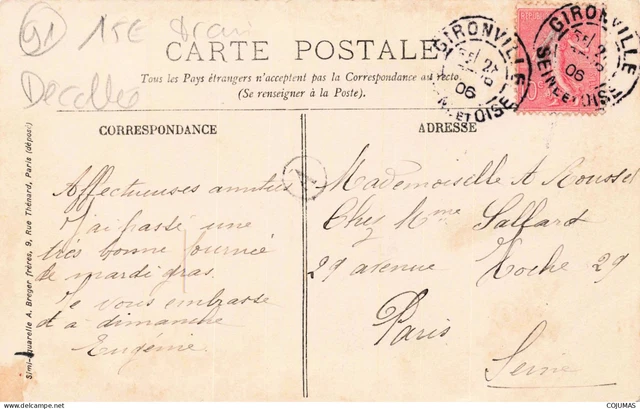 91 15€ train
Decollée
CARTE POSTALE
Tous les Pays étrangers n'acceptent pas la Correspondance au recto.
(Se renseigner à la Poste).
GIRONVILLE
06
SEINE ET OISE
GIRONVILLE
06
SEINE ET OISE
CORRESPONDANCE
ADRESSE
Affectueuses amitiés
J'ai passé une
très bonne journée
de mardi gras.
Je vous embrasse
et à dimanche
Eugénie
Mademoiselle A Roussel
Chez Mme Sallard
29 avenue Hoche 29
Paris
Seine
Simi-aquarelle A. Breger frères, 9, Rue Thénard, Paris (déposé)
COJUMAS